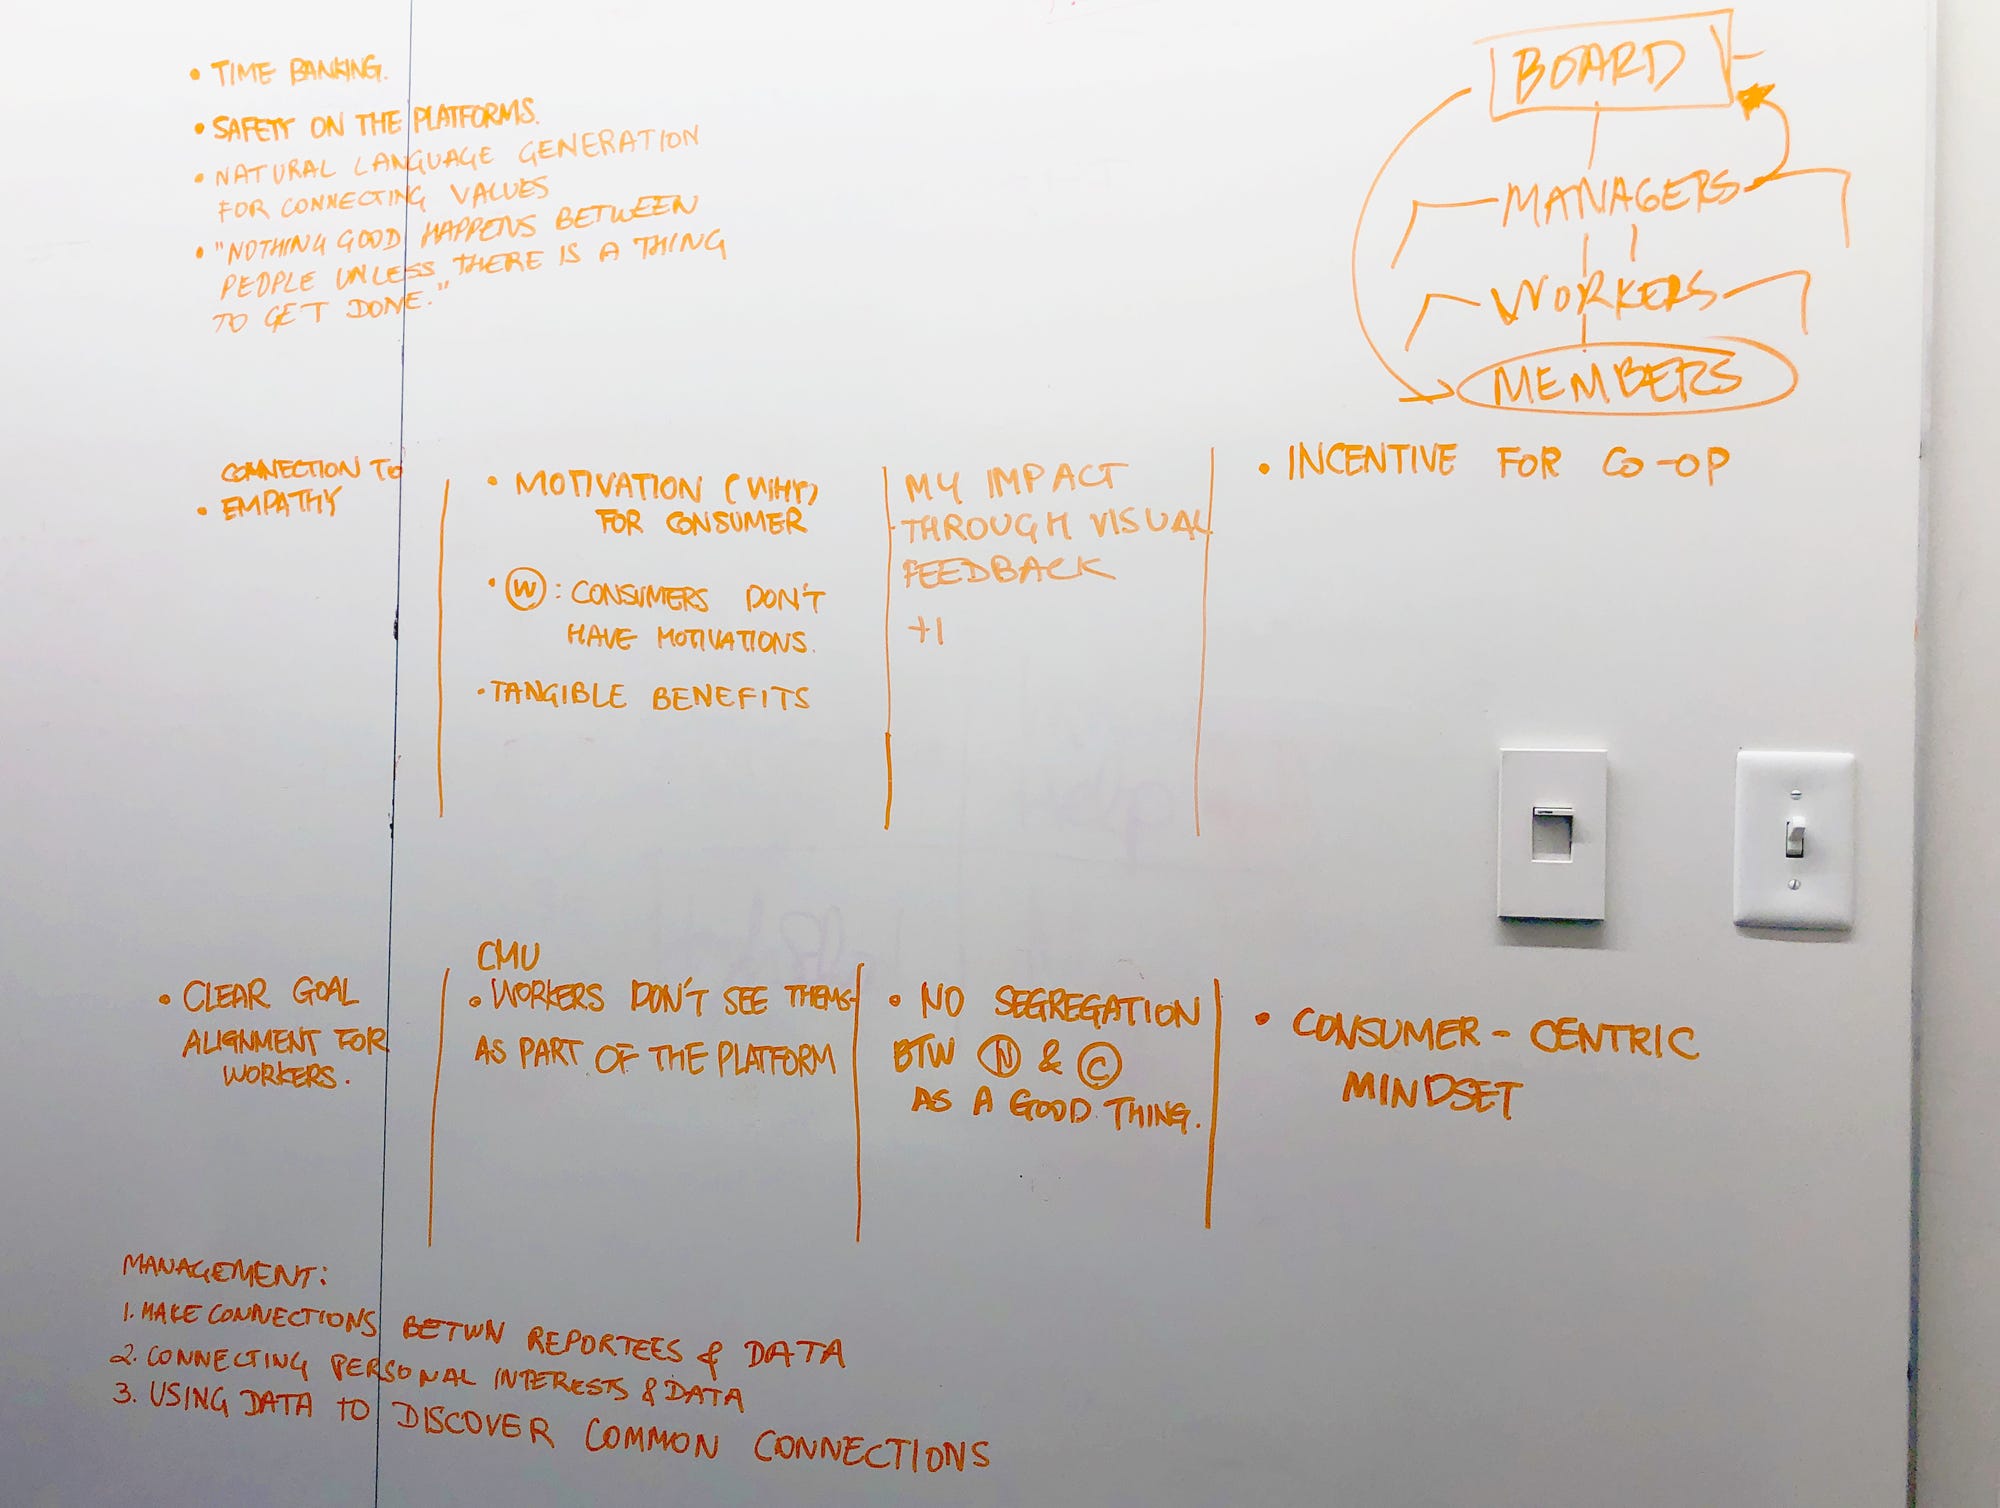 • TIME BANKING.
• SAFETY ON THE PLATFORMS.
• NATURAL LANGUAGE GENERATION
FOR CONNECTING VALUES
• "NOTHING GOOD HAPPENS BETWEEN
PEOPLE UNLESS THERE IS A THING
TO GET DONE."
BOARD
MANAGERS
WORKERS
MEMBERS
CONNECTION TO
• EMPATHY
• MOTIVATION (WHY)
FOR CONSUMER
• Ⓦ: CONSUMERS DON'T
HAVE MOTIVATIONS.
• TANGIBLE BENEFITS
MY IMPACT
THROUGH VISUAL
FEEDBACK
+1
• INCENTIVE FOR CO-OP
• CLEAR GOAL
ALIGNMENT FOR
WORKERS.
CMU
• WORKERS DON'T SEE THEMS-
AS PART OF THE PLATFORM
• NO SEGREGATION
BTW Ⓦ & Ⓒ
AS A GOOD THING.
• CONSUMER-CENTRIC
MINDSET
MANAGEMENT:
1. MAKE CONNECTIONS BETWN REPORTEES & DATA
2. CONNECTING PERSONAL INTERESTS & DATA
3. USING DATA TO DISCOVER COMMON CONNECTIONS